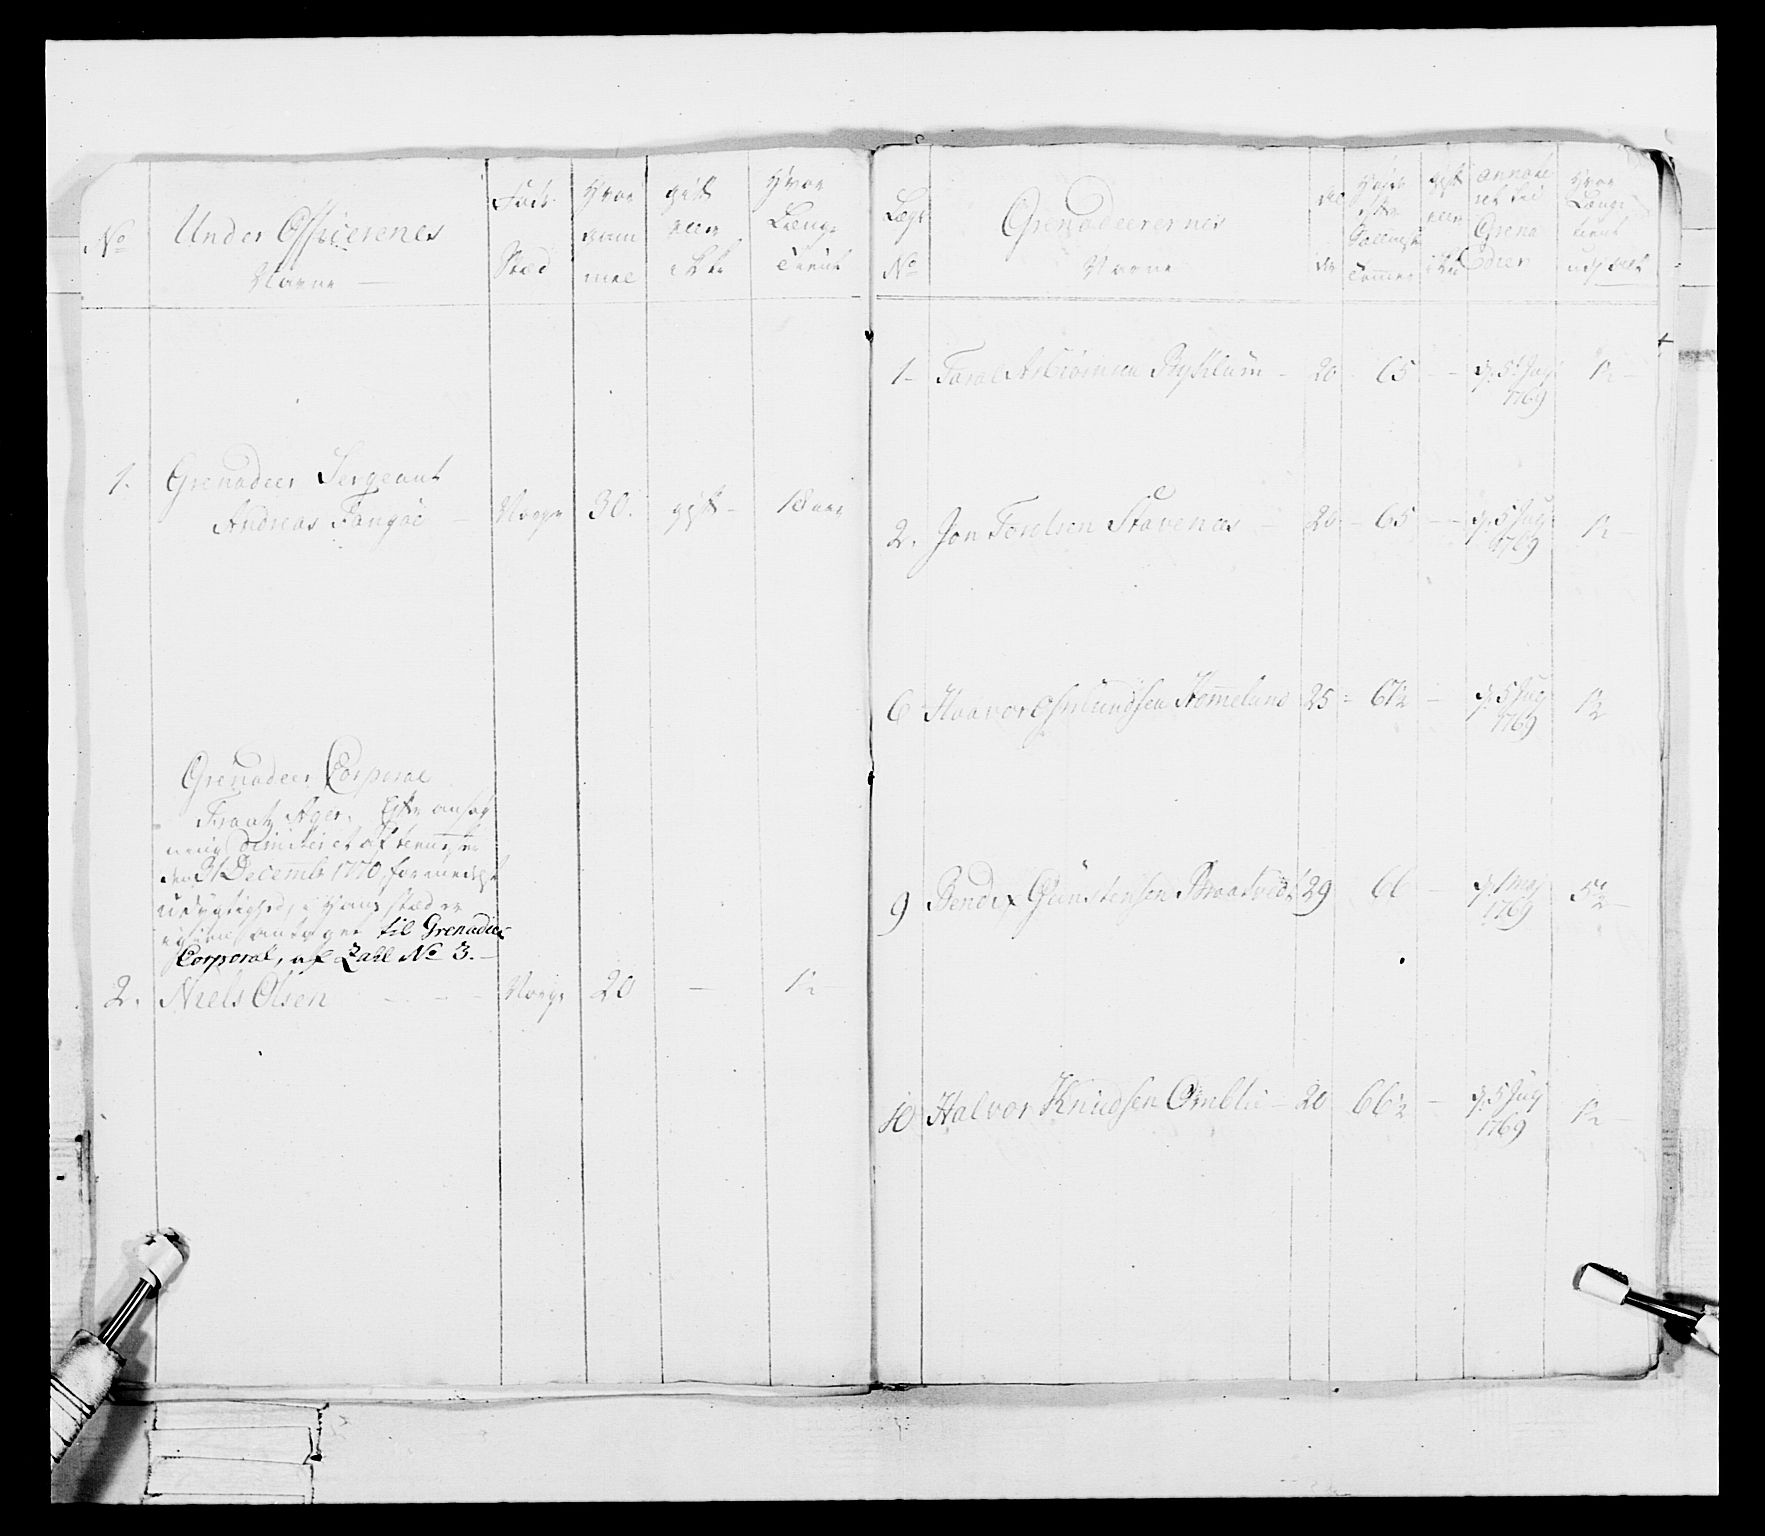 No
Under Officerenes
Navne
Föde
Stæd
Hvor
gam
mel
gift
eller
ikke
Hvor
Længe
Tient
1.
Grenadeer Sergeant
Andreas Fangöe
Norge
30.
gift
18 aar
Grenadeer Corporal
Frantz Ager. Efter ansøg
ning dimiteret af tienesten
den 31 Decembr 1770, formedelst
udygtighed, i Hans stæd er
igien antaget til Grenadeer
Corporal, af Zahl No 3.
2.
Niels Olsen
Norge
20
1½
Legs
No
Grenadeerernes
Navne
al
der
Höide
efter
Tommer
gift
eller
ikke
annam
met til
Grena
dier
Hvor
Længe
tient
1
Taral Rysstum
20
65
d. 5 July
1769
1½
2.
Jon Tarolsen Stavenæs
20
65
d. 5 July
1769
1½
6
Haavor Asmundsen Hommelund
25
67½
d. 5 July
1769
1½
9
Bendix Gunstensen Braatvedt
29
66
d. 1 May
1769
5½
10
Halvor Knudsen Omblie
20
66½
d. 5 July
1769
1½